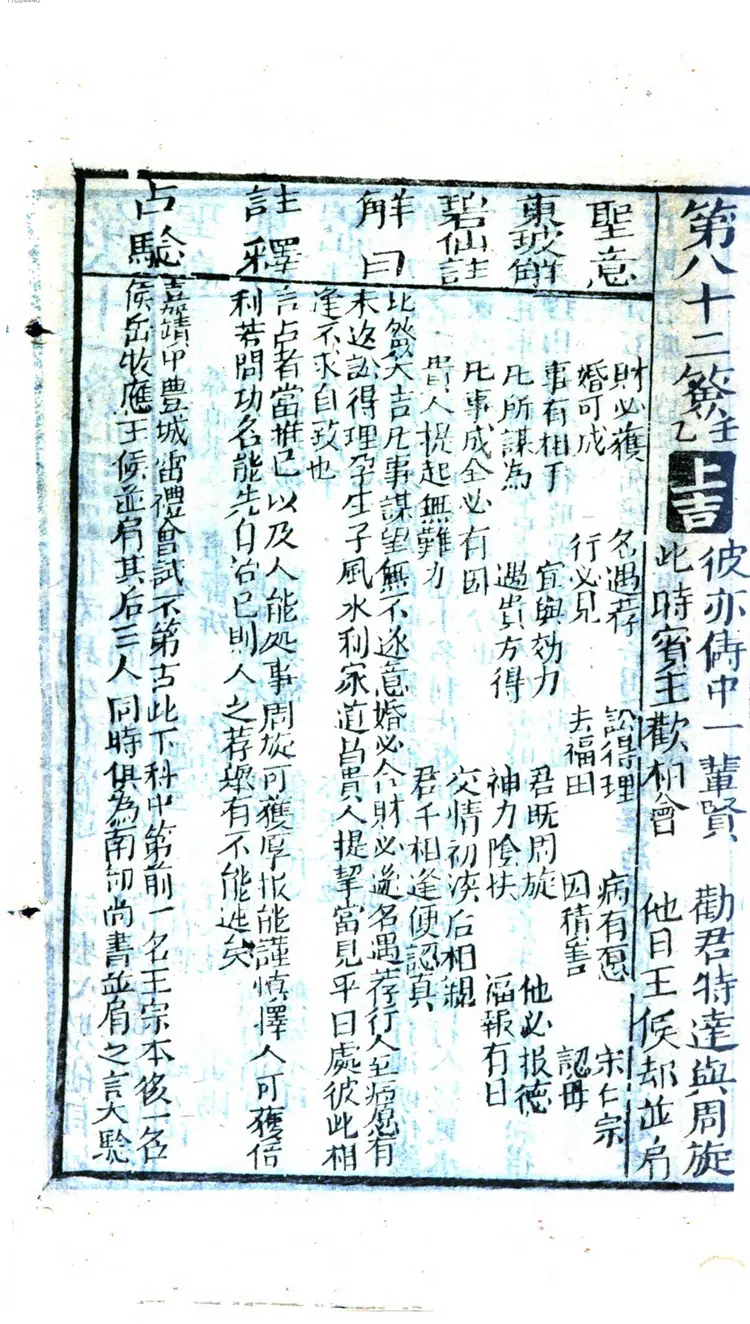 第八十二籤 壬乙 上吉
彼亦儔中一輩賢 勸君特達與周旋
此時賓主歡相會 他日王侯却並肩
聖意
財必獲 名遇荐 訟得理 病有愿 宋仁宗
婚可成 行必見 去福田 因積善 認母
東坡解
事有相手 宜與効力 君既周旋 他必报德
凡所謀為 遇貴方得 神力陰扶 福報有日
碧仙註
凡事成全必有因 交情初淡后相親
貴人提起無難力 君千相逢便認真
解曰
此籤大吉凡事謀望無不遂意婚必合財必逸名遇荐行人至病愿有
未返訟得理孕生子風水利家道昌貴人提挈當見平日處彼此相
逢不求自致也
註釋
言占者當推己以及人能処事周旋可獲厚报能謹慎擇人可獲倍
利若問功名能先自治己則人之荐樂有不能迯矣
占驗
嘉靖甲豊城雷禮會試不第占此下科中第前一名王宗本後一名
侯岳牧應王侯並肩其后三人同時俱為南部尚書並肩之言大驗